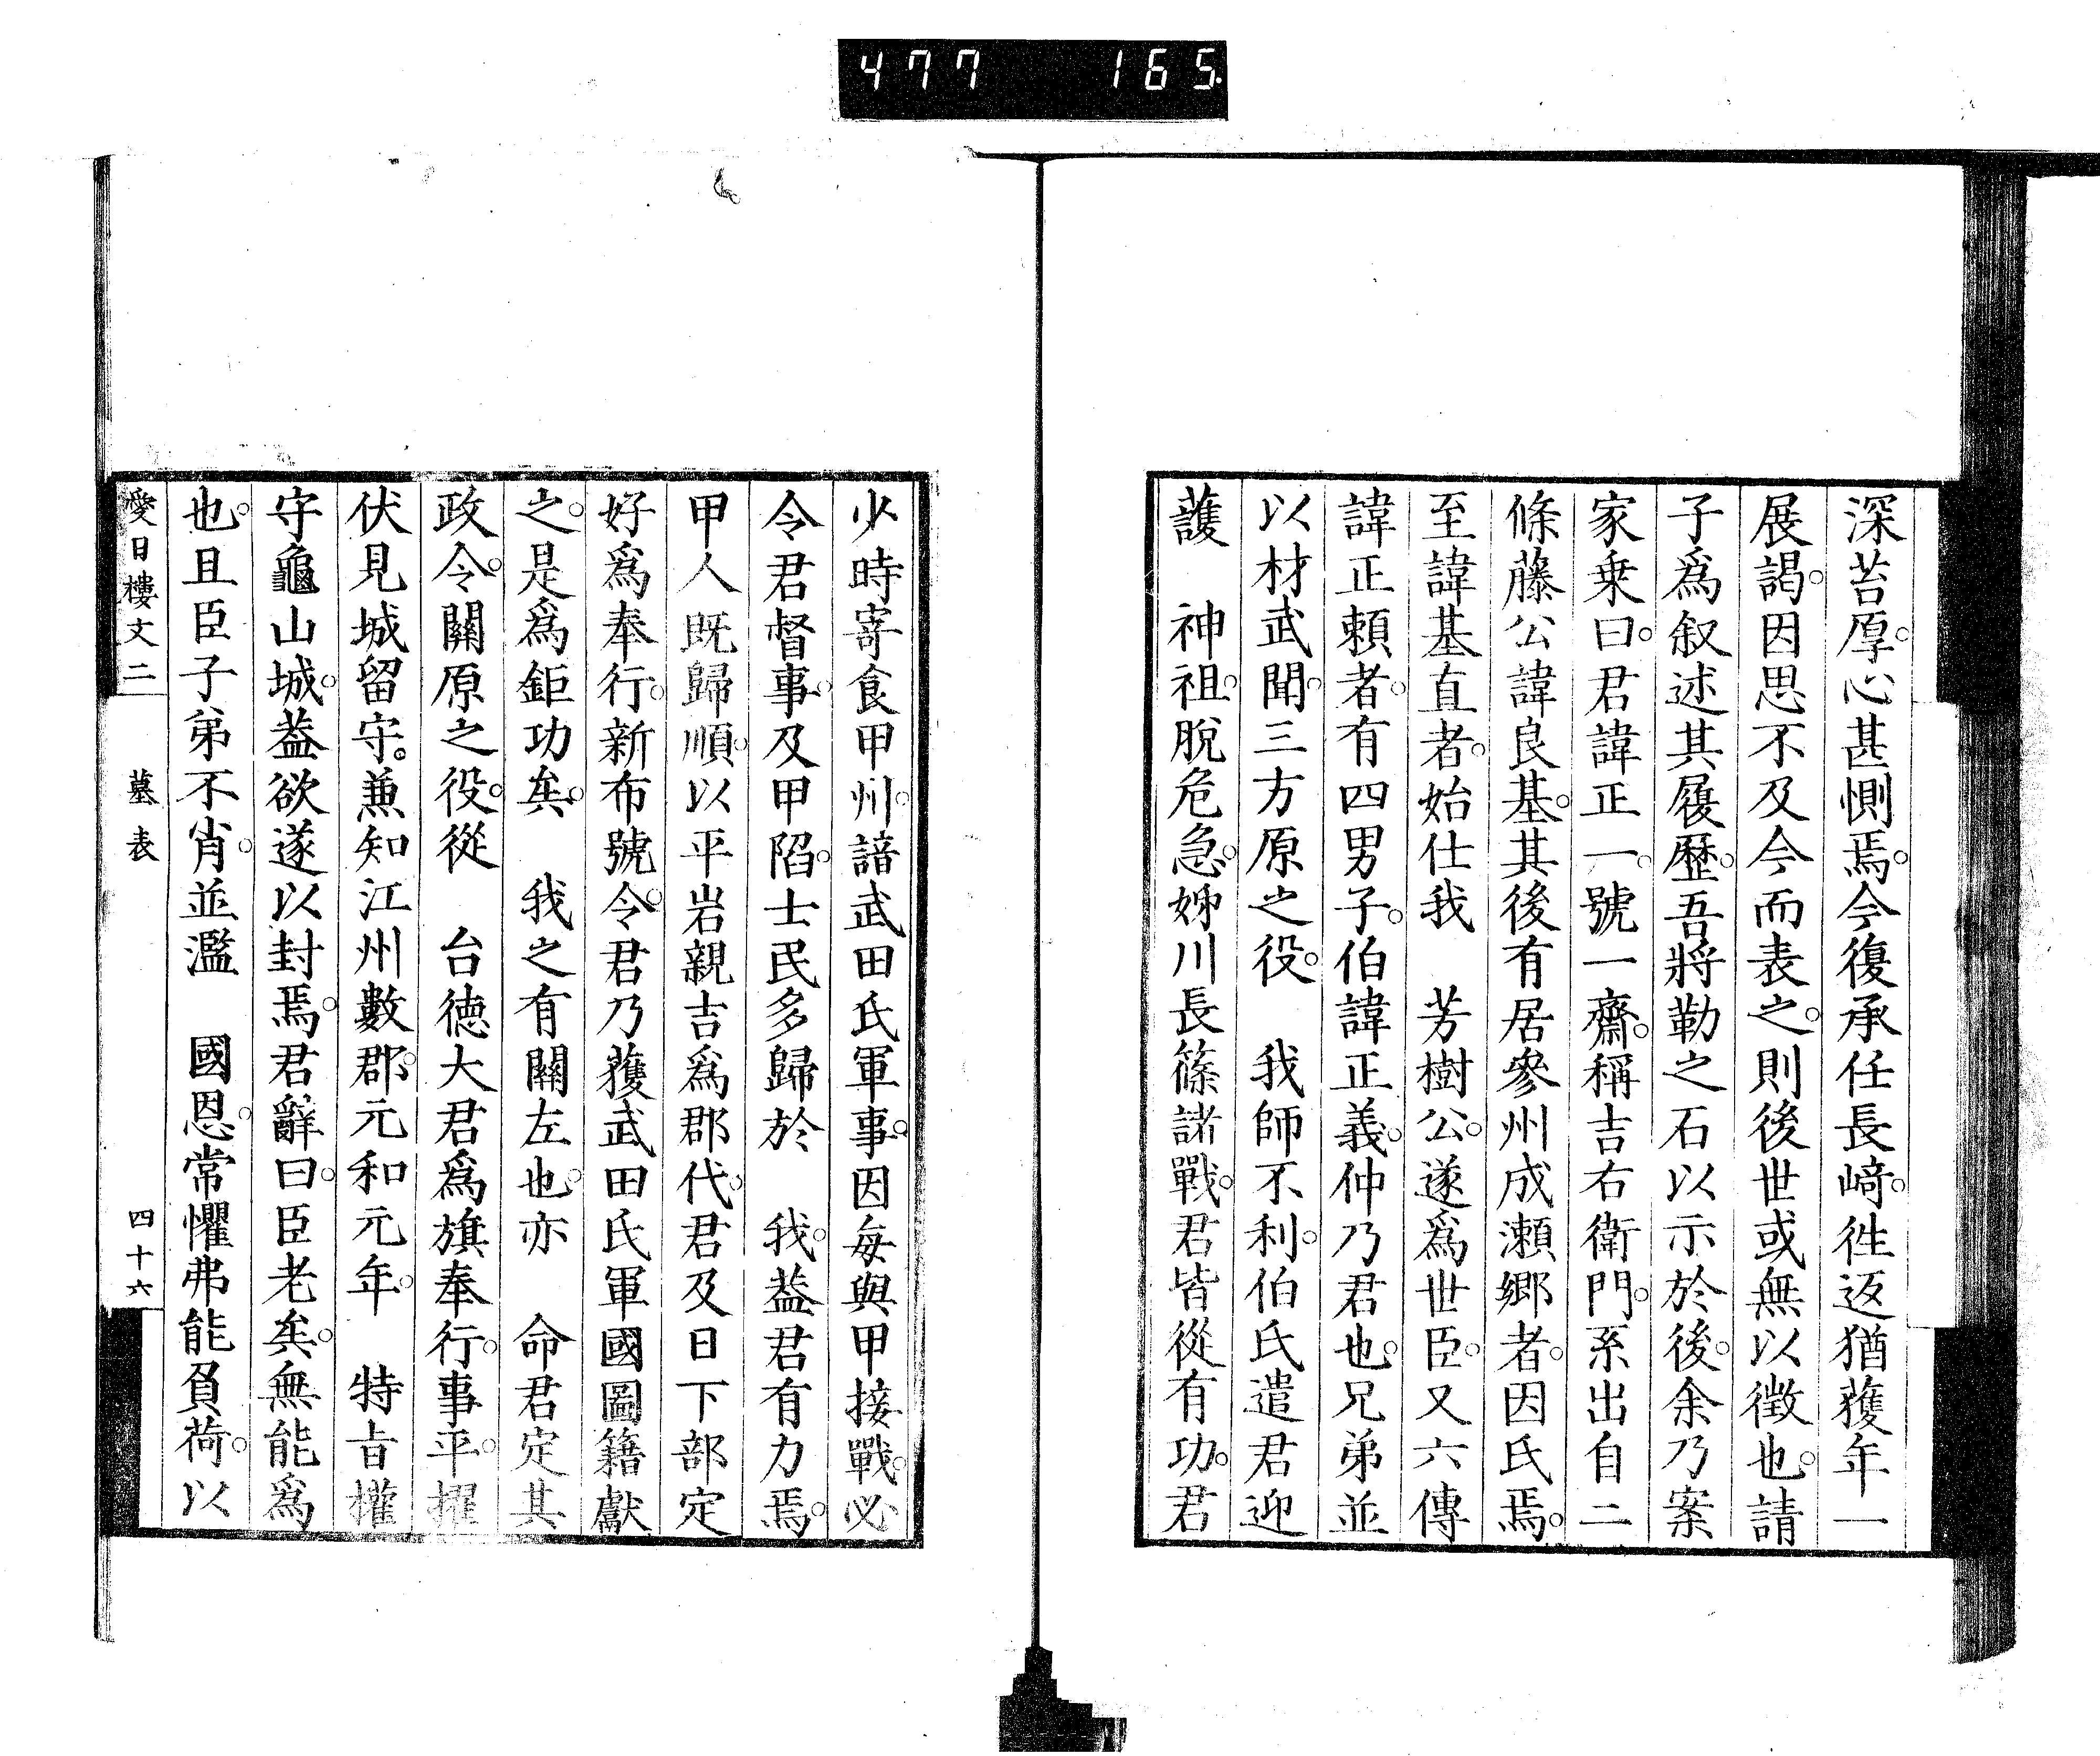 477 165
深苔厚。心甚惻焉。今復承任長﨑。徃返猶獲年一
展謁。因思不及今而表之。則後世或無以徵也。請
子爲叙述其履歷。吾將勒之石以示於後。余乃案
家乗曰。君諱正一。號一齋。稱吉右衛門。系出自二
條藤公諱良基。其後有居參州成瀬郷者。因氏焉。
至諱基直者。始仕我　芳樹公。遂爲世臣。又六傳
諱正頼者。有四男子。伯諱正義。仲乃君也。兄弟並
以材武聞。三方原之役。　我師不利。伯氏遣君迎
護　神祖。脫危急。姊川長篠諸戰。君皆從有功。君
少時寄食甲州。諳武田氏軍事。因每與甲接戰。必
令君督事。及甲陷。士民多歸於　我。葢君有力焉。
甲人既歸順。以平岩親吉爲郡代。君及日下部定
好爲奉行。新布號令。君乃獲武田氏軍國圖籍獻
之。是爲鉅功矣。　我之有關左也。亦　命君定其
政令。關原之役。從　台德大君爲旗奉行。事平。擢
伏見城留守。兼知江州數郡。元和元年。　特旨權
守龜山城。葢欲遂以封焉。君辭曰。臣老矣。無能爲
也。且臣子弟不肖。並濫　國恩。常懼弗能負荷。以
愛日樓文二　墓表　四十六